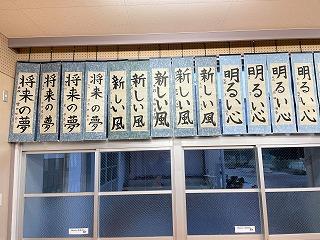 将来の夢
将来の夢
将来の夢
将来の夢
新しい風
新しい風
新しい風
新しい風
新しい風
明るい心
明るい心
明るい心
明るい心